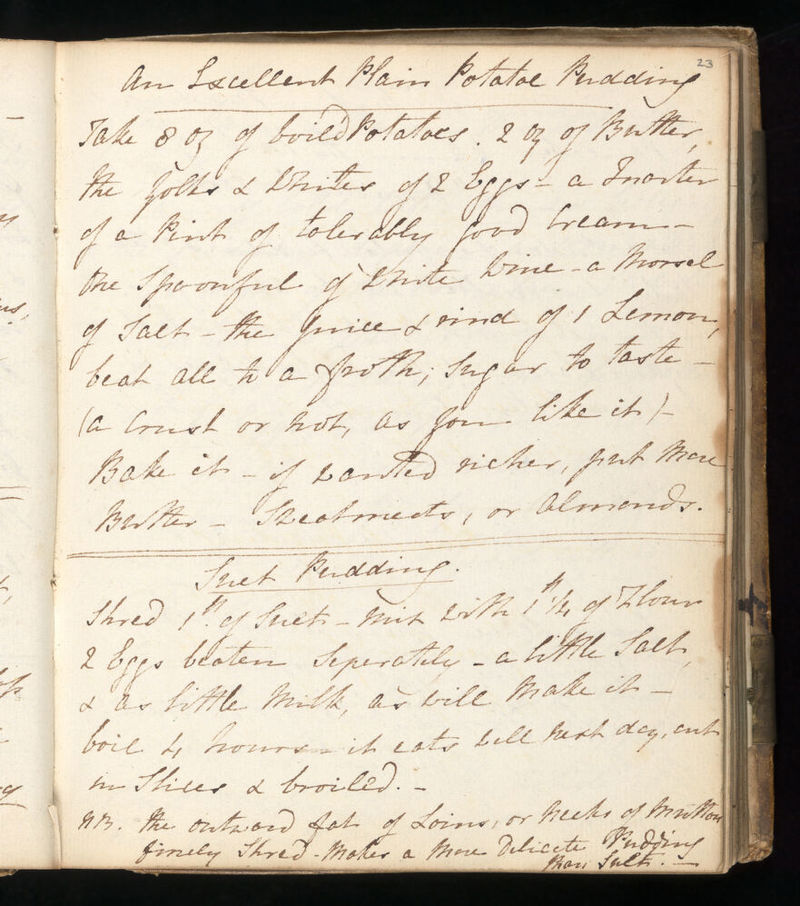 23
An Excellent Plain Potatoe Pudding
Take 8 oz of boild Potatoes. 2 oz of Butter,
the Yolks & Whites of 2 Eggs - a Quarter
of a Pint of tolerably good Cream -
One Spoonful of White Wine - a Morsel
of Salt - the Juice & rind of 1 Lemon,
beat all to a froth; Sugar to taste -
(a Crust or not, as you like it) -
Bake it - if wanted richer, put More
Butter - Sweatmeats, or Almonds.
Suet Pudding.
Shred 1 lb. of Suet - mix with 1 lb 1/4 of Flour
2 Eggs beaten Seperately - a little Salt,
& as little Milk, as will Make it -
boil 4 hours - it eats well next day, cut
in Slices & broiled. -
NB. the outward fat of Loins, or Necks of Mutton
finely Shred - Makes a More Delicate Pudding
than Suet. -